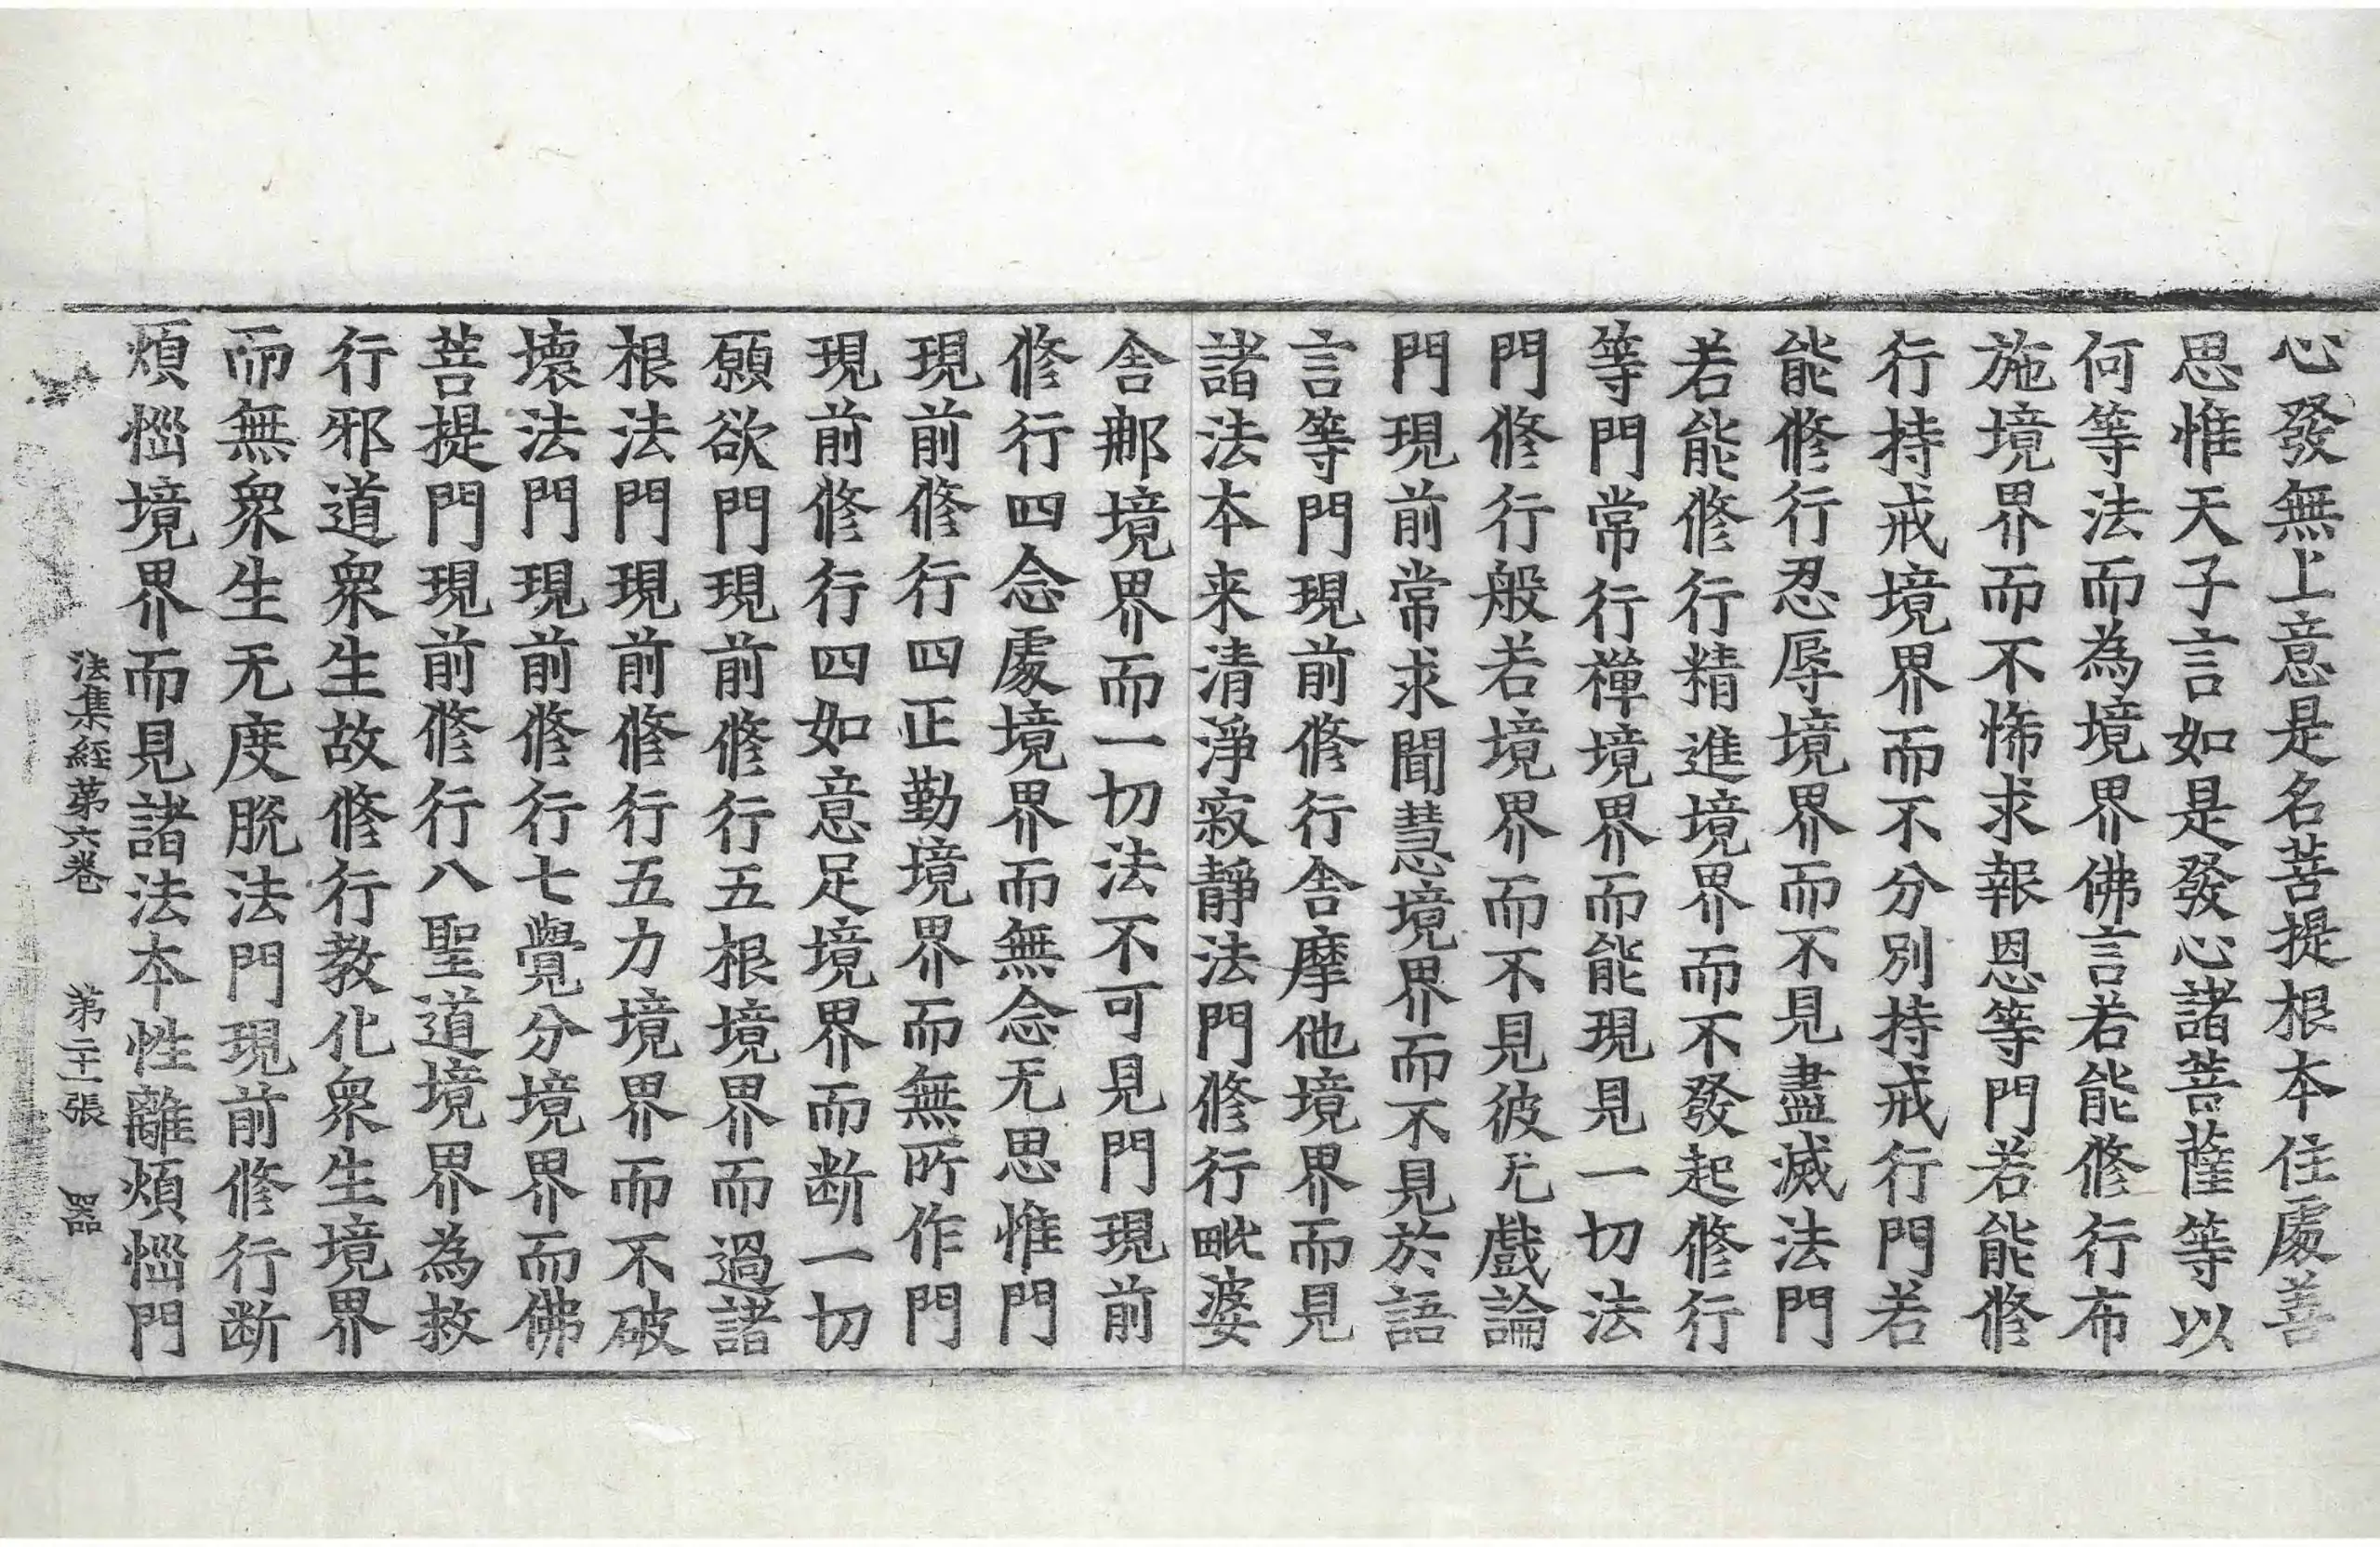 心發無上意是名菩提根本住處善
思惟天子言如是發心諸菩薩等以
何等法而為境界佛言若能修行布
施境界而不悕求報恩等門若能修
行持戒境界而不分別持戒行門若
能修行忍辱境界而不見盡滅法門
若能修行精進境界而不發起修行
等門常行禪境界而能現見一切法
門修行般若境界而不見彼无戲論
門現前常求聞慧境界而不見於語
言等門現前修行舍摩他境界而見
諸法本来清淨寂靜法門修行毗婆
舍那境界而一切法不可見門現前
修行四念處境界而無念无思惟門
現前修行四正勤境界而無所作門
現前修行四如意足境界而断一切
願欲門現前修行五根境界而過諸
根法門現前修行五力境界而不破
壞法門現前修行七覺分境界而佛
菩提門現前修行八聖道境界為救
行邪道衆生故修行教化衆生境界
而無衆生无度脫法門現前修行断
煩惱境界而見諸法本性離煩惱門
法集經苐六卷 苐二十一張 器